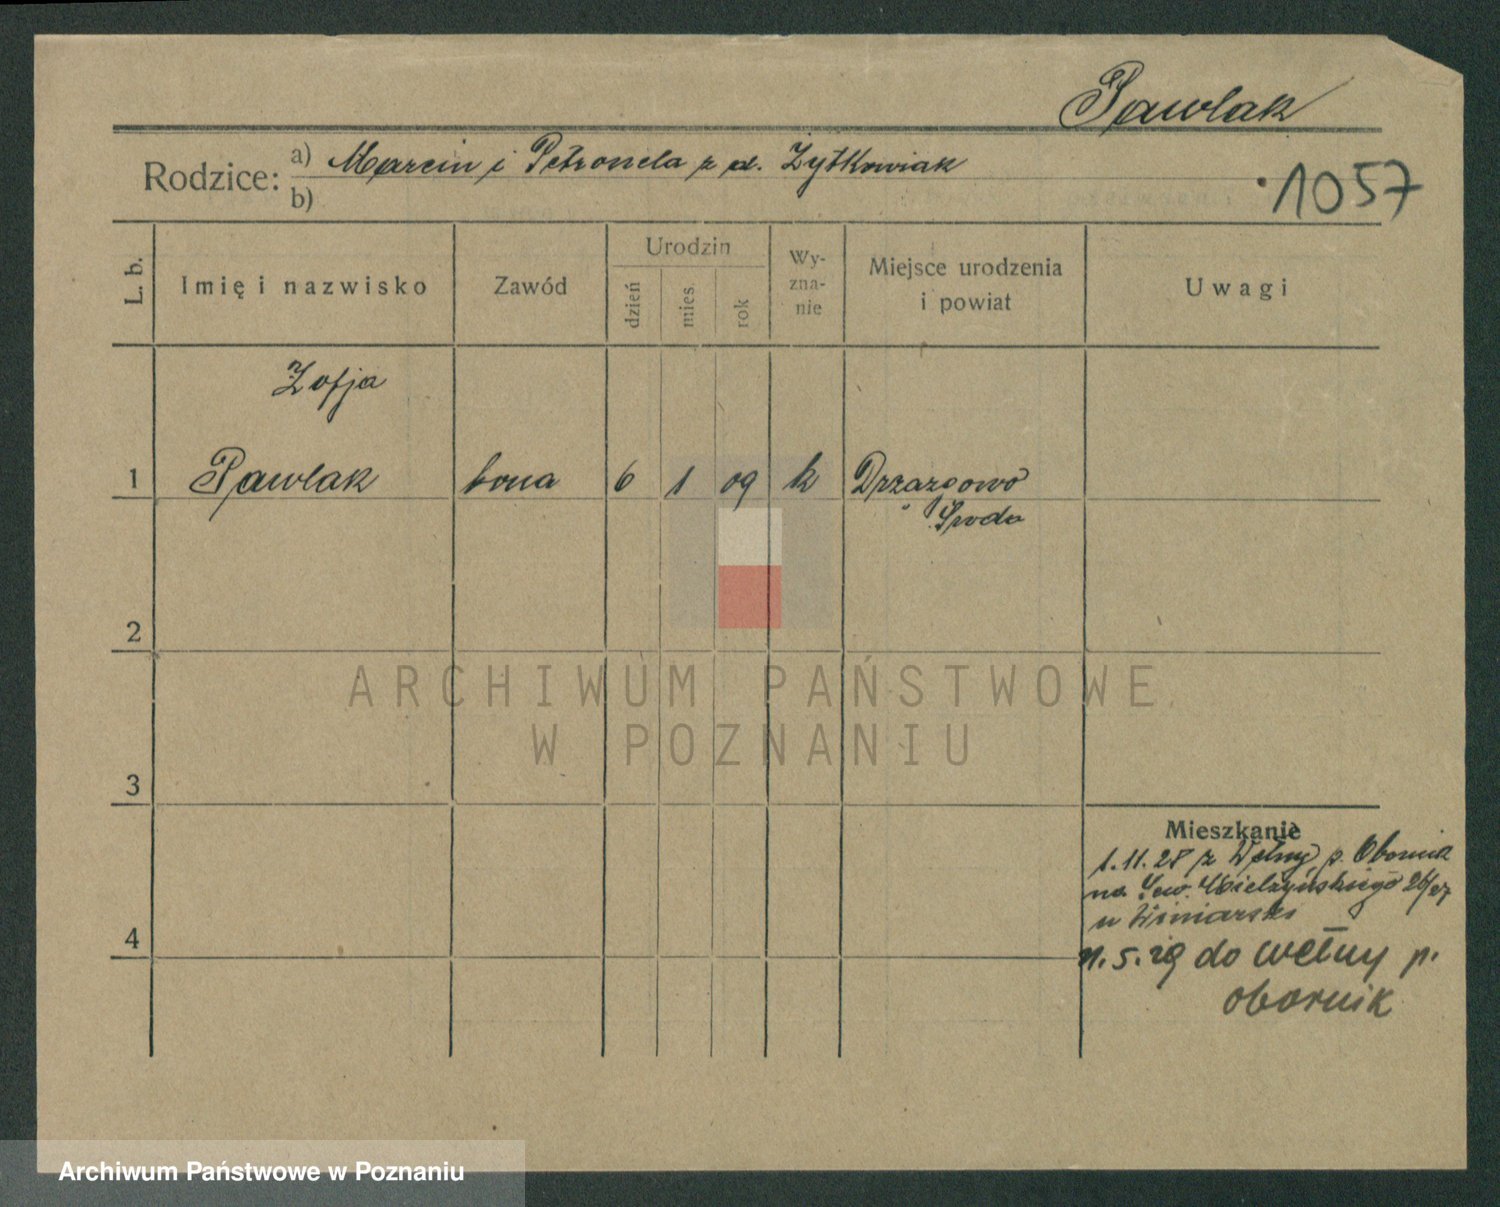 Pawlak
Rodzice: a) Marcin i Petronela z d. Żytkowiak
b)
1057
L. b.
Imię i nazwisko
Zawód
Urodzin
dzień
mies.
rok
Wy-
zna-
nie
Miejsce urodzenia
i powiat
Uwagi
Zofja
1 Pawlak bona 6 1 09 k Drzazgowo
Środa
2
ARCHIWUM PAŃSTWOWE
W POZNANIU
3
Mieszkanie
1.11.28 z Wełny p. Obornik
na Sew. Mielżyńskiego 26/27
u
4
11.5.29 do Wełny p.
Obornik
Archiwum Państwowe w Poznaniu